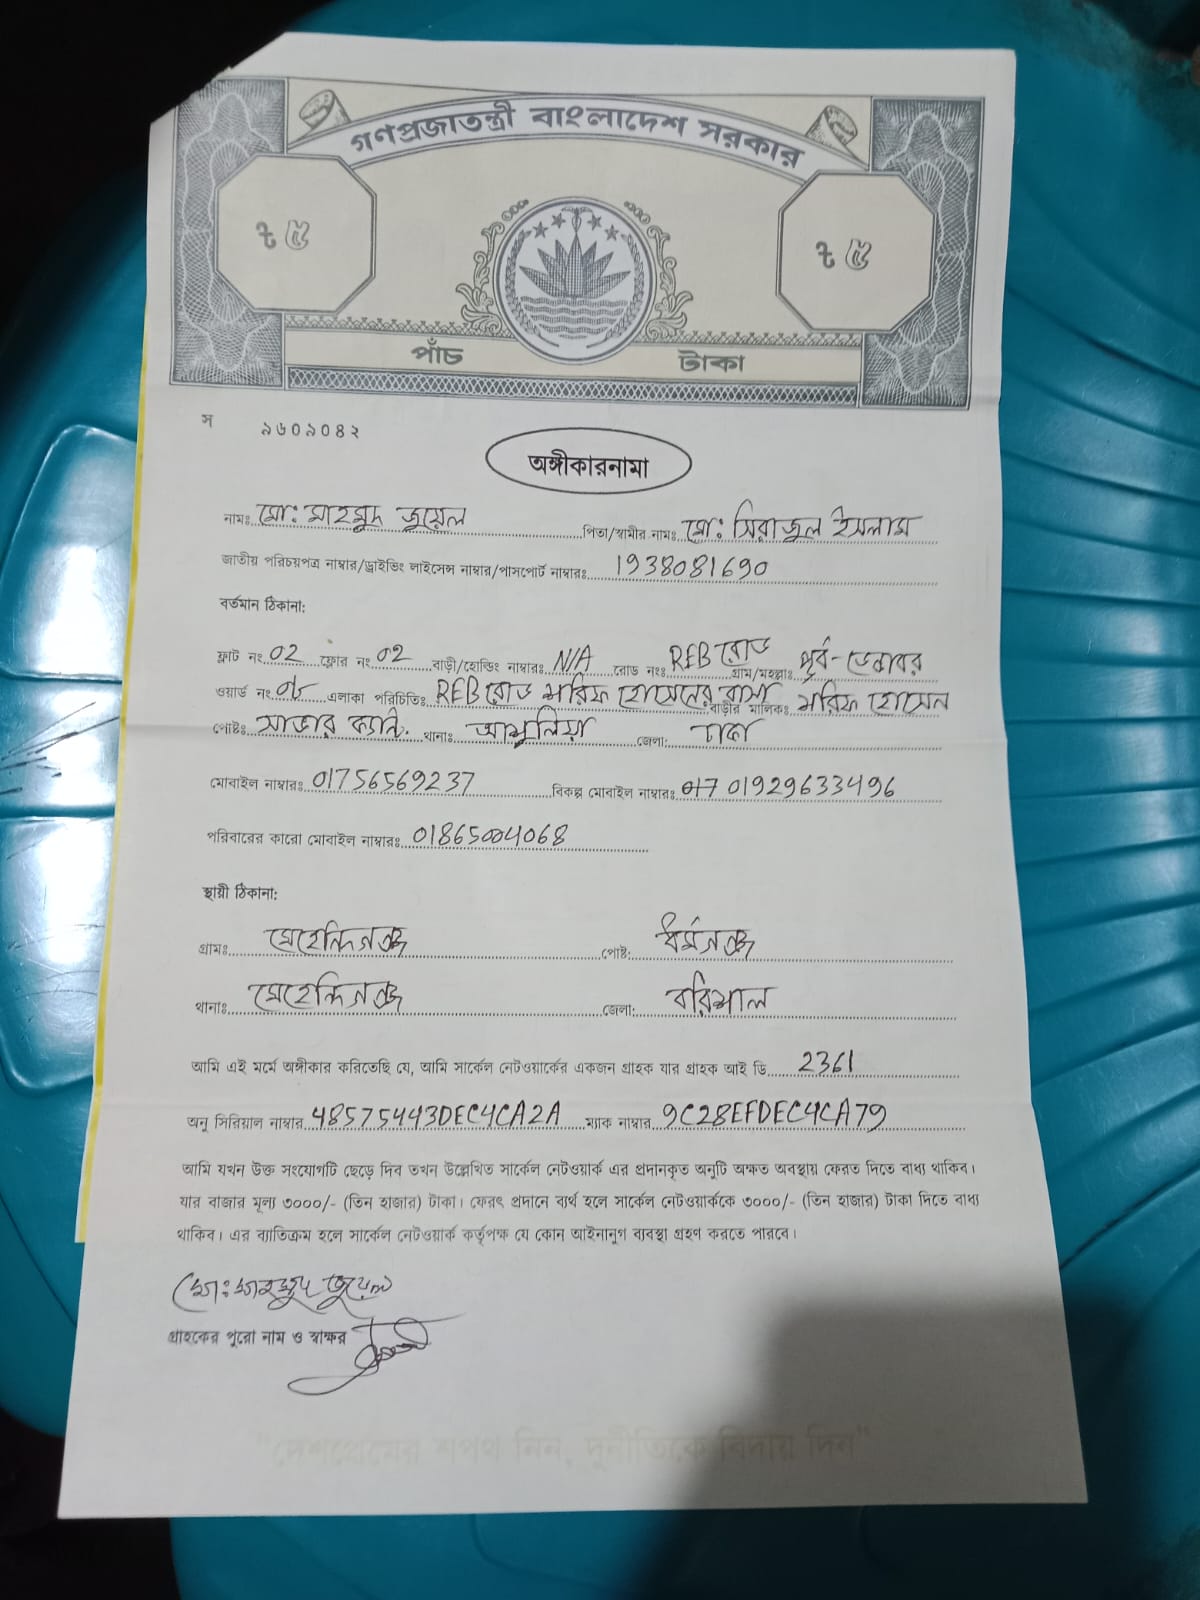 গণপ্রজাতন্ত্রী বাংলাদেশ সরকার
৳ ৫ ৳ ৫
পাঁচ টাকা
স ৯৬০৯০৪২
অঙ্গীকারনামা
নামঃ মো: মাহমুদ জুয়েল পিতা/স্বামীর নামঃ মো: সিরাজুল ইসলাম
জাতীয় পরিচয়পত্র নাম্বার/ড্রাইভিং লাইসেন্স নাম্বার/পাসপোর্ট নাম্বারঃ 1938081690
বর্তমান ঠিকানা:
ফ্লাট নং 02 ফ্লোর নং 02 বাড়ী/হোল্ডিং নাম্বারঃ N/A রোড নংঃ REB রোড গ্রাম/মহল্লাঃ পূর্ব-ডেন্ডাবর
ওয়ার্ড নং এলাকা পরিচিতিঃ REB রোড শরিফ হোসেনের বাসা বাড়ীর মালিকঃ শরিফ হোসেন
পোষ্টঃ সাভার ক্যান্ট. থানাঃ আশুলিয়া জেলা: ঢাকা
মোবাইল নাম্বারঃ 01756569237 বিকল্প মোবাইল নাম্বারঃ 017 01929633496
পরিবারের কারো মোবাইল নাম্বারঃ 01865004068
স্থায়ী ঠিকানা:
গ্রামঃ মেহেন্দিগঞ্জ পোষ্ট: ধর্মগঞ্জ
থানাঃ মেহেন্দিগঞ্জ জেলা: বরিশাল
আমি এই মর্মে অঙ্গীকার করিতেছি যে, আমি সার্কেল নেটওয়ার্কের একজন গ্রাহক যার গ্রাহক আই ডি 2361
অনু সিরিয়াল নাম্বার 48575443DEC4CA2A ম্যাক নাম্বার 9C28EFDEC4CA79
আমি যখন উক্ত সংযোগটি ছেড়ে দিব তখন উল্লেখিত সার্কেল নেটওয়ার্ক এর প্রদানকৃত অনুটি অক্ষত অবস্থায় ফেরত দিতে বাধ্য থাকিব।
যার বাজার মূল্য ৩০০০/- (তিন হাজার) টাকা। ফেরৎ প্রদানে ব্যর্থ হলে সার্কেল নেটওয়ার্ককে ৩০০০/- (তিন হাজার) টাকা দিতে বাধ্য
থাকিব। এর ব্যতিক্রম হলে সার্কেল নেটওয়ার্ক কর্তৃপক্ষ যে কোন আইনানুগ ব্যবস্থা গ্রহণ করতে পারবে।
মো: মাহমুদ জুয়েল
গ্রাহকের পুরো নাম ও স্বাক্ষর
"দেশপ্রেমের শপথ নিন, দুর্নীতিকে বিদায় দিন"